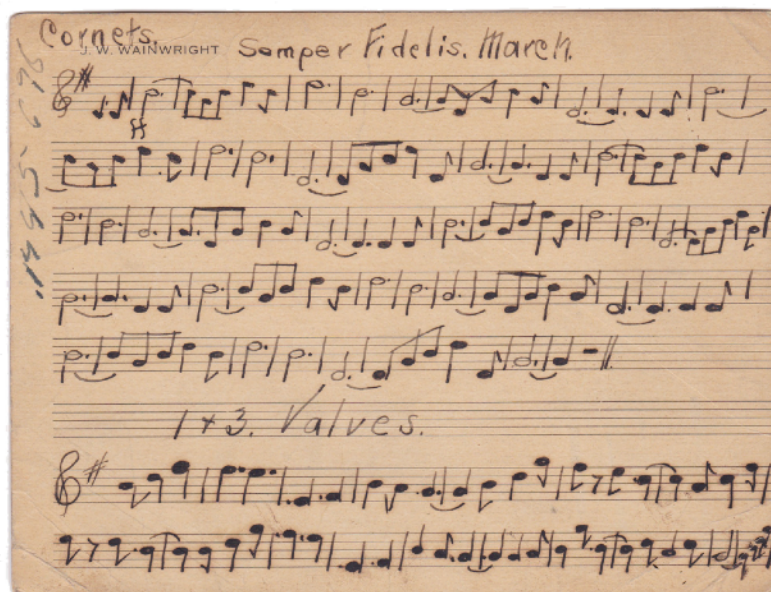 Cornets.
J. W. WAINWRIGHT
Semper Fidelis. March.
1+3. Valves.